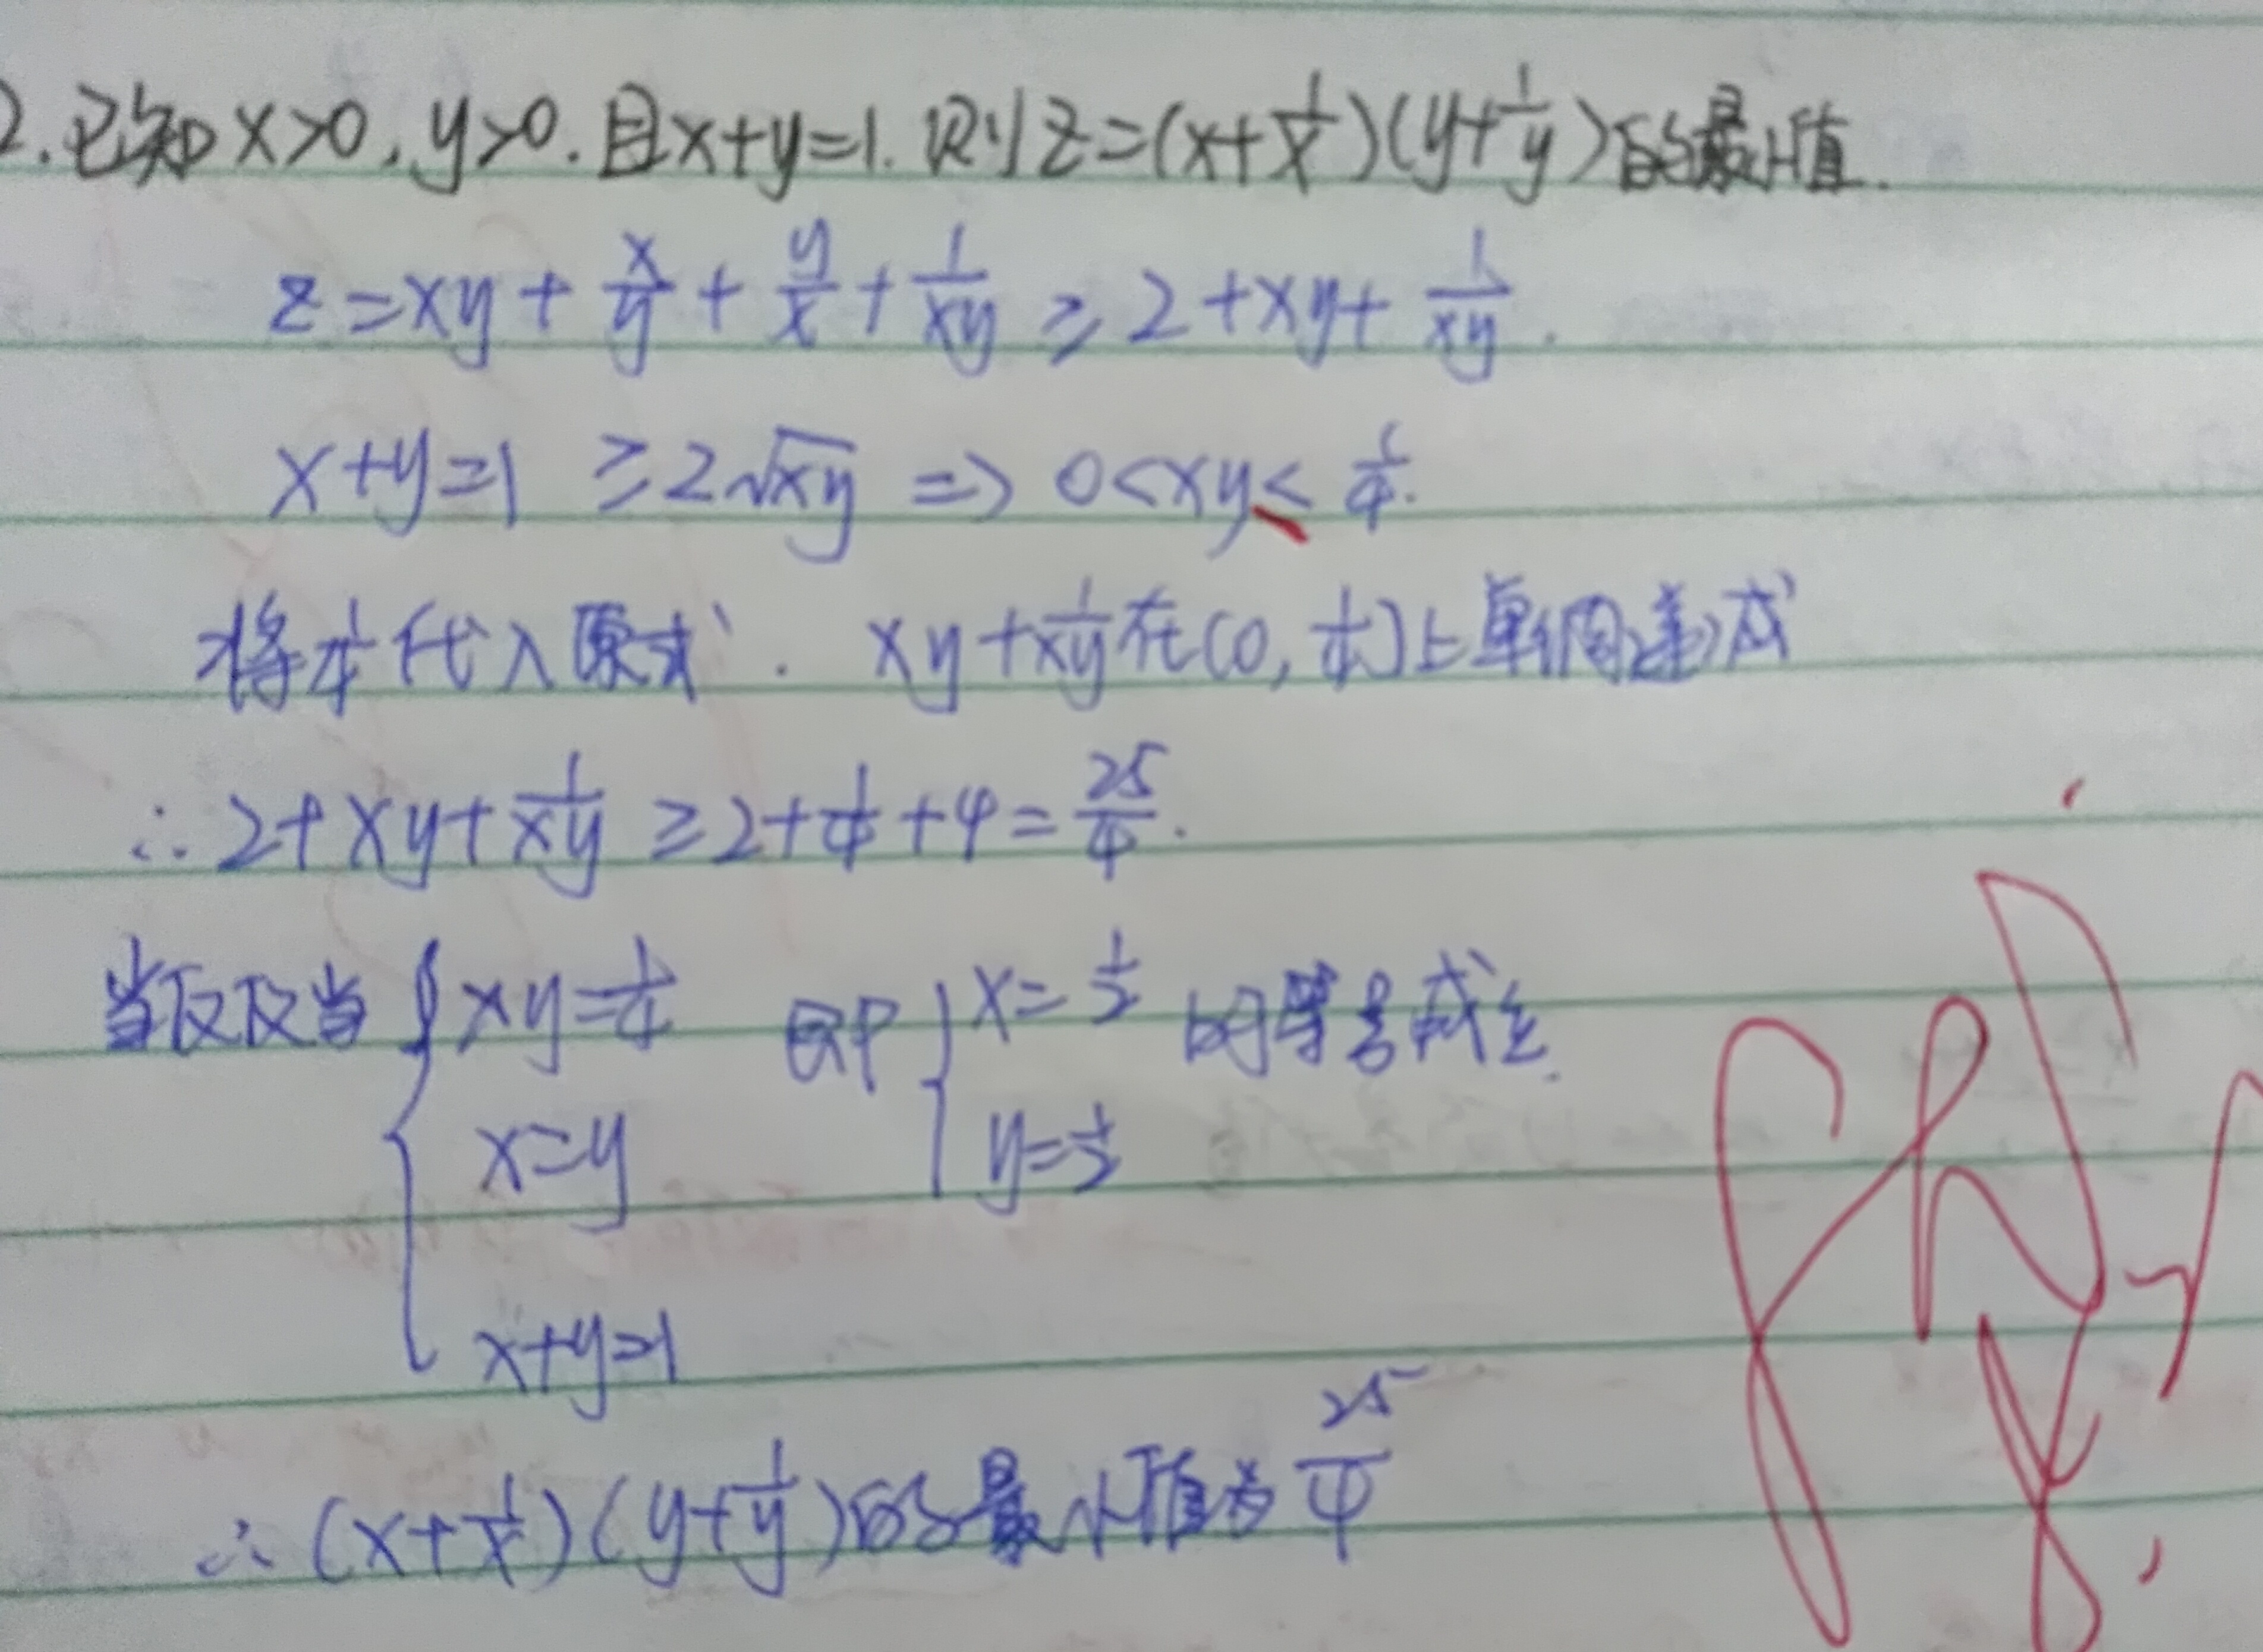 2.已知x>0,y>0.且x+y=1.则z=(x+1/x)(y+1/y)的最小值.
z=xy+x/y+y/x+1/xy≥2+xy+1/xy.
x+y=1 ≥2√xy => 0<xy≤1/4.
将1/4代入原式. xy+1/xy在(0,1/4]上单调递减
∴2+xy+1/xy≥2+1/4+4=25/4.
当且仅当{xy=1/4 即{x=1/2 时等号成立.
x=y y=1/2
x+y=1
∴(x+1/x)(y+1/y)的最小值为25/4